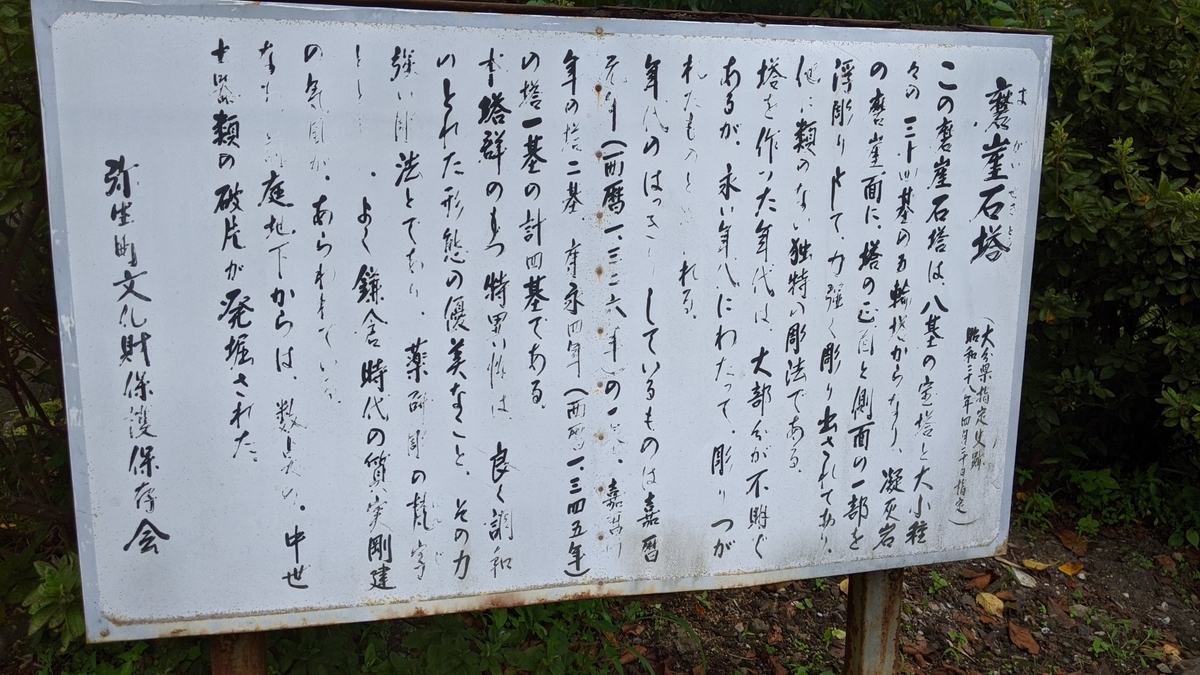 磨崖石塔
まがいせきとう
(大分県指定史跡
昭和二八年四月二十日指定)
この磨崖石塔は、八基の宝塔と大小種
々の三十四基の五輪塔からなり、凝灰岩
の磨崖面に、塔の正面と側面の一部を
浮彫りにして、力強く彫り出されており、
他に類のない独特の彫法である。
塔を作った年代は、大部分が不明で
あるが、永い年代にわたって、彫りつが
れたものと れる。
年代のはっきりしているものは嘉暦
元年(西暦一、三二六年)の一基、嘉暦
年の塔二基 康永四年(西暦一、三四五年)
の塔一基の計四基である。
塔群のもつ特異い性は 良く調和
のとれた形態の優美なこと、その力
強い彫法とであり 薬研彫の梵字
とと 、よく鎌倉時代の質実剛建
の気風が、あらわれている。
なお 前庭地下からは、数 の、中世
土器類の破片が発掘された。
弥生町文化財保護保存会